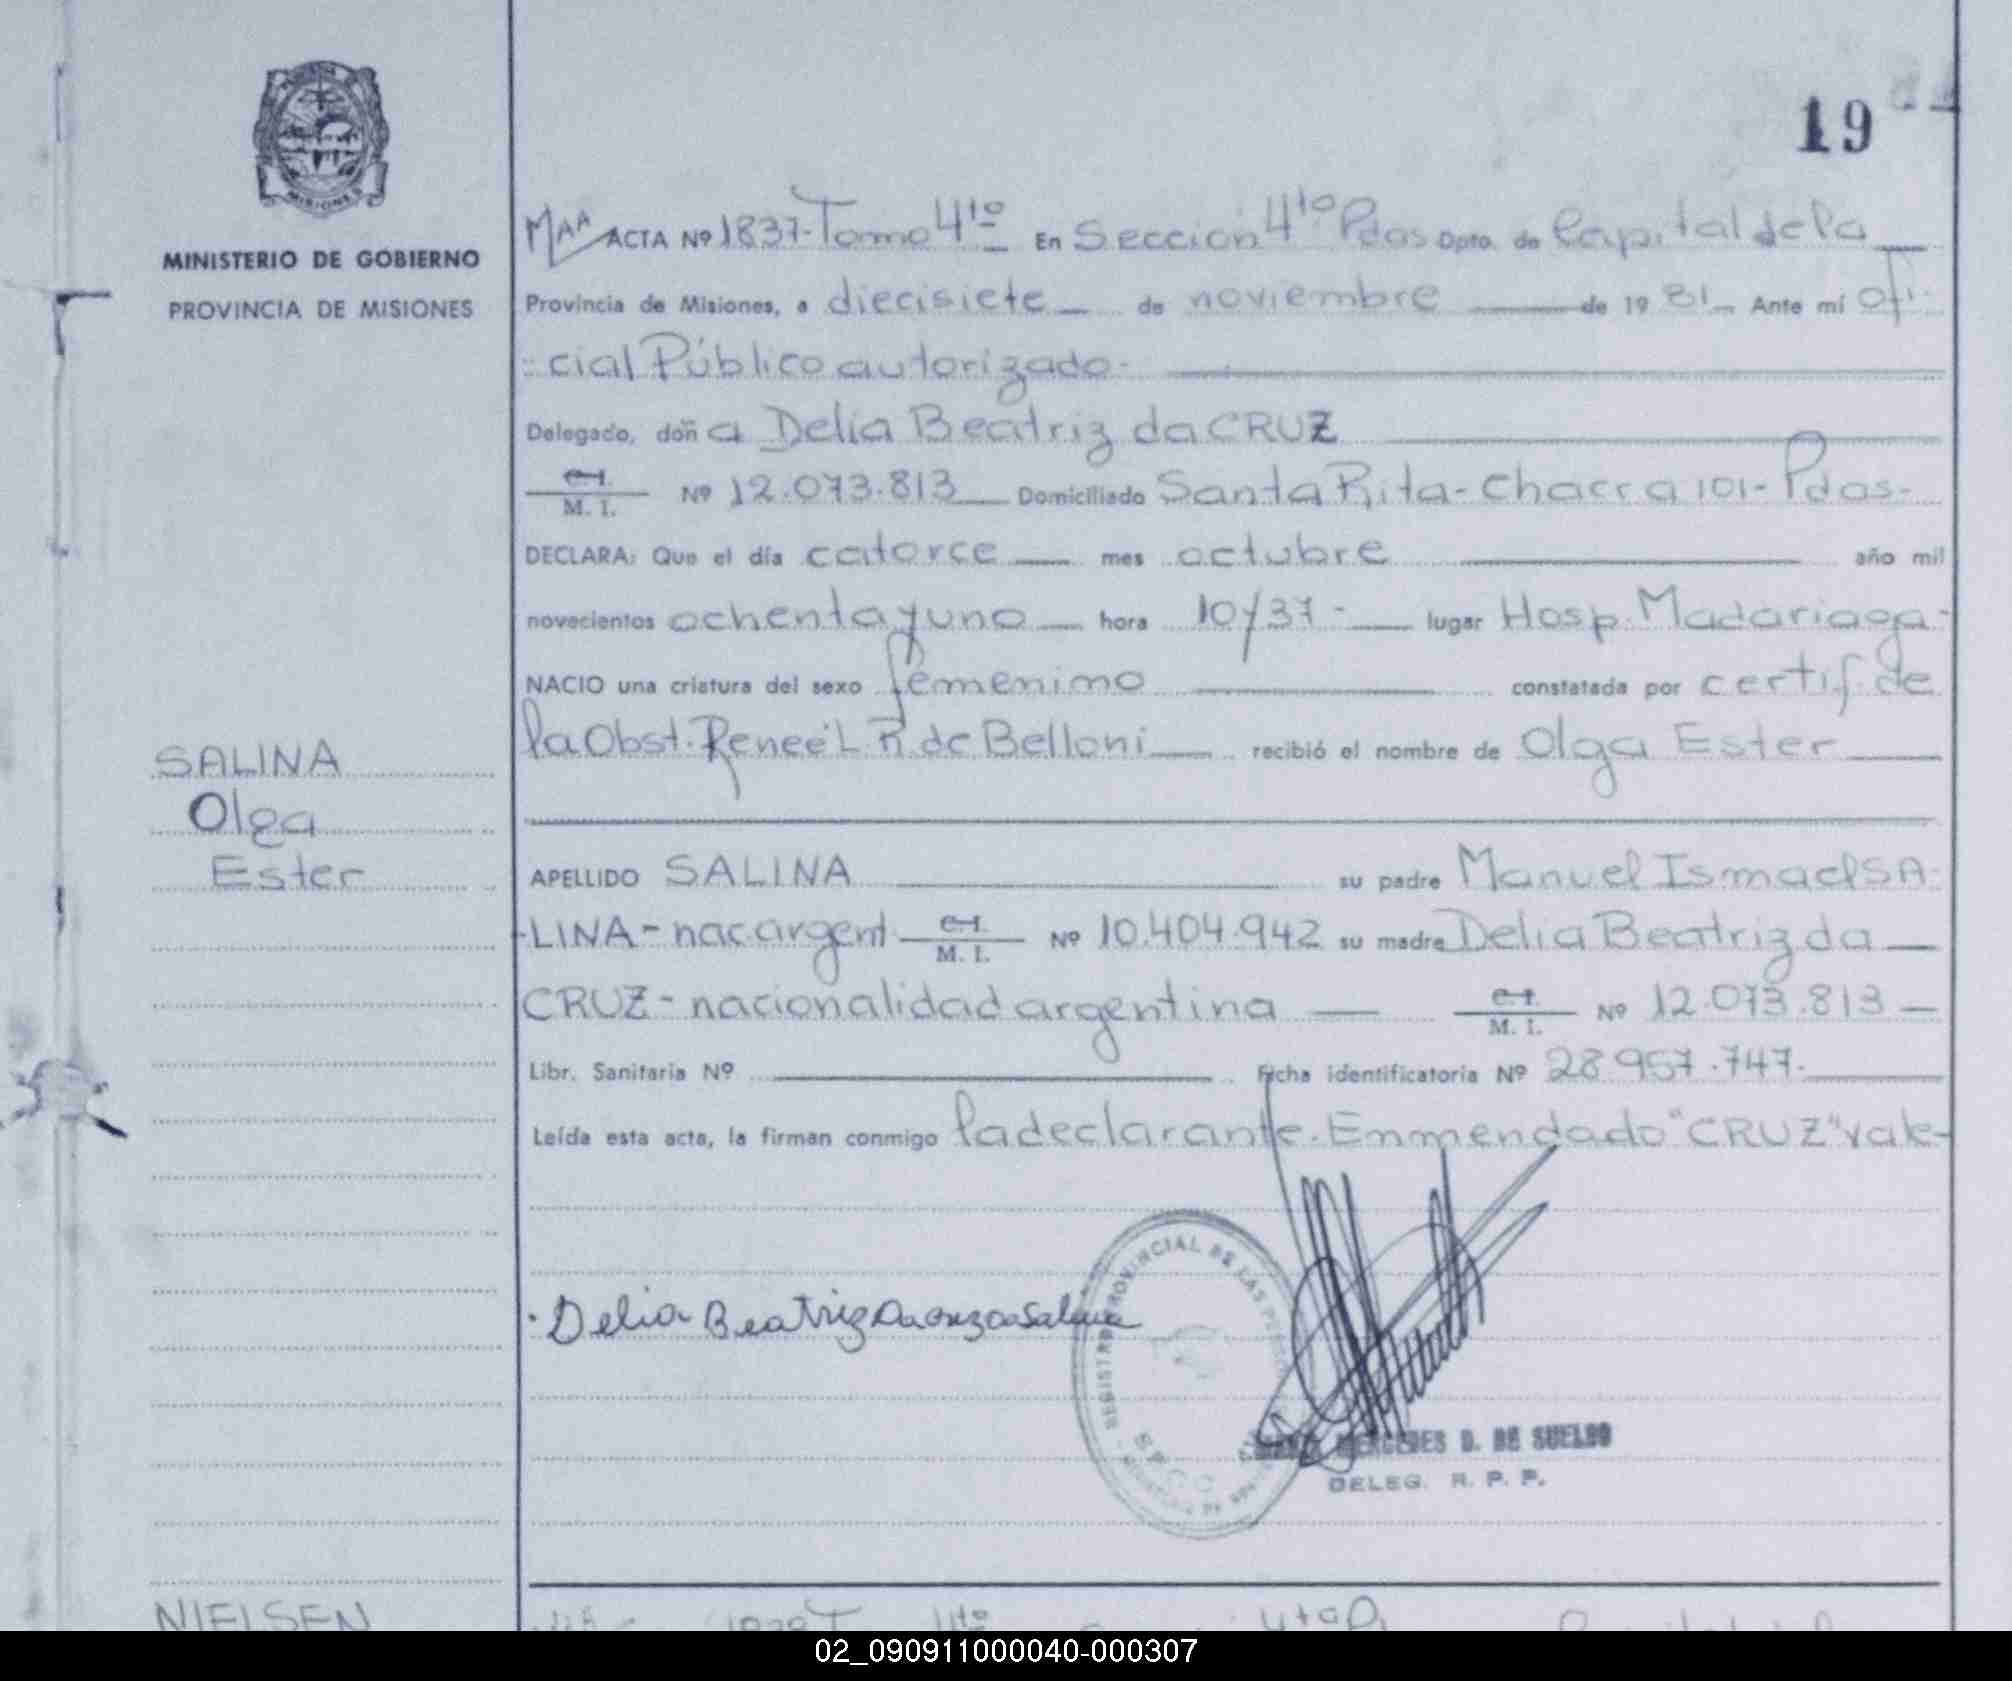 19
MISIONES
MINISTERIO DE GOBIERNO
PROVINCIA DE MISIONES
SALINA
Olga
Ester
MAA ACTA Nº 1837-Tomo 4to En Sección 4to Pdas Dpto. de Capital de la
Provincia de Misiones, a diecisiete de noviembre de 19 81 Ante mí Ofi-
cial Público autorizado-
Delegado, doñ a Delia Beatriz da CRUZ
C.I. M. I. Nº 12.073.813 Domiciliado Santa Rita-Chacra 101-Pdas-
DECLARA: Que el día catorce mes octubre año mil
novecientos ochenta y uno hora 10/37- lugar Hosp. Madariaga-
NACIO una criatura del sexo femenino constatada por certif. de
la Obst. Reneé L R. de Belloni recibió el nombre de Olga Ester
APELLIDO SALINA su padre Manuel Ismael SA-
LINA- nac. argent. C.I. M. I. Nº 10.404.942 su madre Delia Beatriz da
CRUZ- nacionalidad argentina C.I. M. I. Nº 12.073.813
Libr. Sanitaria Nº Ficha identificatoria Nº 28.957.747.
Leída esta acta, la firman conmigo la declarante. Enmendado "CRUZ" vale-
Delia Beatriz Da Cruz de Salina
REGISTRO PROVINCIAL DE LAS
MERCEDES D. DE SUELDO
DELEG. R. P. P.
NIELSEN
02_090911000040-000307